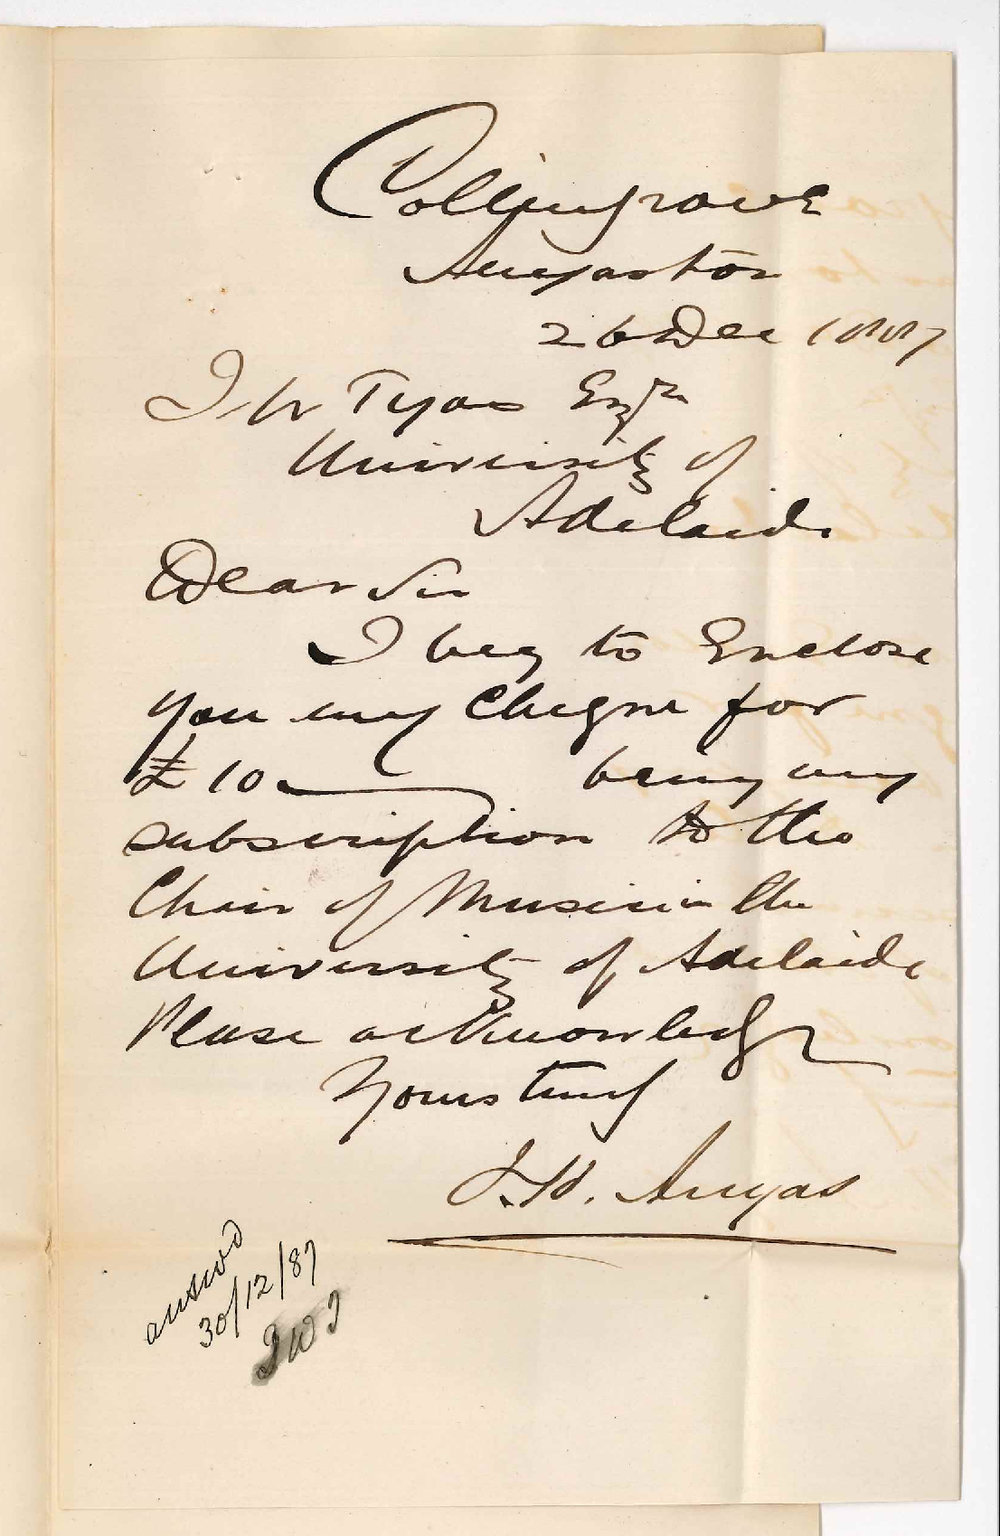 Collingrove
Angaston
26 Dec 1887
J. W Tyas Esqre
University of
Adelaide
Dear Sir
I beg to Enclose
you my Cheque for
£10 being my
subscription to the
Chair of Music in the
University of Adelaide
Please acknowledge
Yours truly
J. H. Angas
answd
30/12/87
JWT